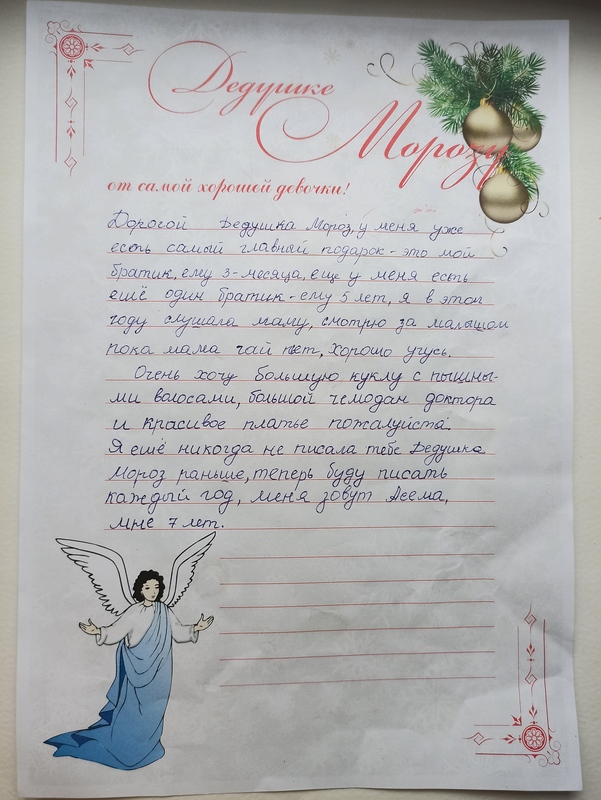 Дедушке
Морозу
от самой хорошей девочки!
Дорогой Дедушка Мороз, у меня уже
есть самый главный подарок - это мой
братик, ему 3-месяца, еще у меня есть
ещё один братик - ему 5 лет, я в этом
году слушала маму, смотрю за малышом
пока мама чай пьет, хорошо учусь.
Очень хочу большую куклу с пышны-
ми волосами, большой чемодан доктора
и красивое платье пожалуйста.
Я ещё никогда не писала тебе Дедушка
Мороз раньше, теперь буду писать
каждый год, меня зовут Асема,
мне 7 лет.